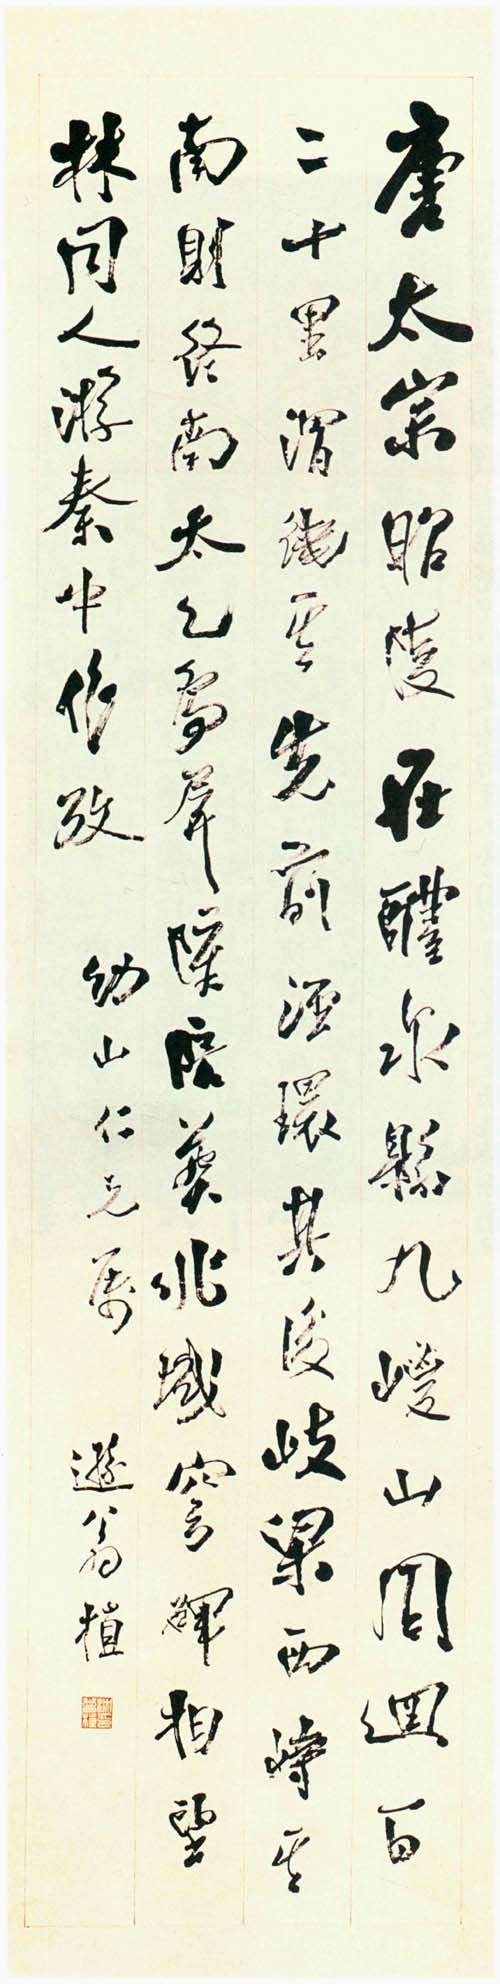 唐太宗昭陵在醴泉縣九嵕山周迴百
二十里渭繞其先前涇環其後岐梁西峙其
南則終南太乙為屏障陪葬兆域穹碑相望
林同人游秦中作攷 幼山仁兄屬 遜翁植